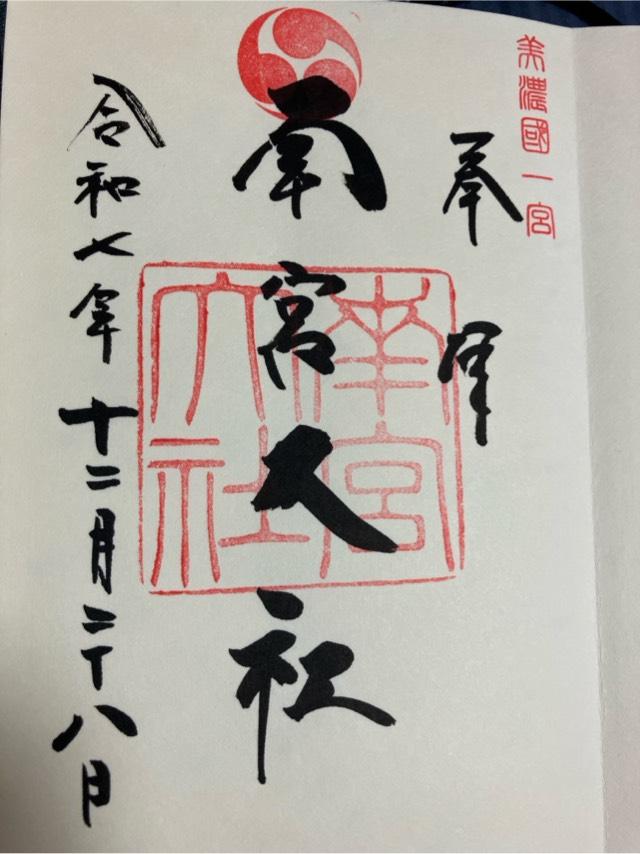 美濃國一宮
奉拝
南宮大社
南宮大社
令和七年十二月二十八日